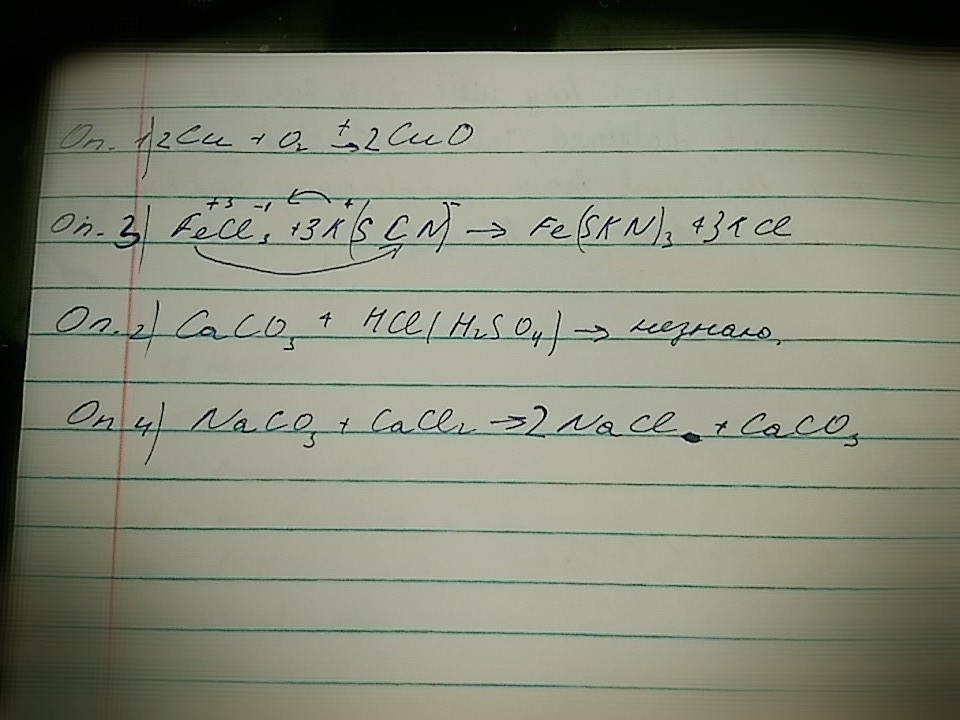 Оп. 1) 2Cu + O₂ →ᵗ 2CuO
Оп. 3) Fe⁺³Cl₃⁻¹ + 3K⁺(SCN)⁻ → Fe(SKN)₃ + 3KCl
Оп. 2) CaCO₃ + HCl(H₂SO₄) → незнаю,
Оп 4) NaCO₃ + CaCl₂ → 2NaCl + CaCO₃